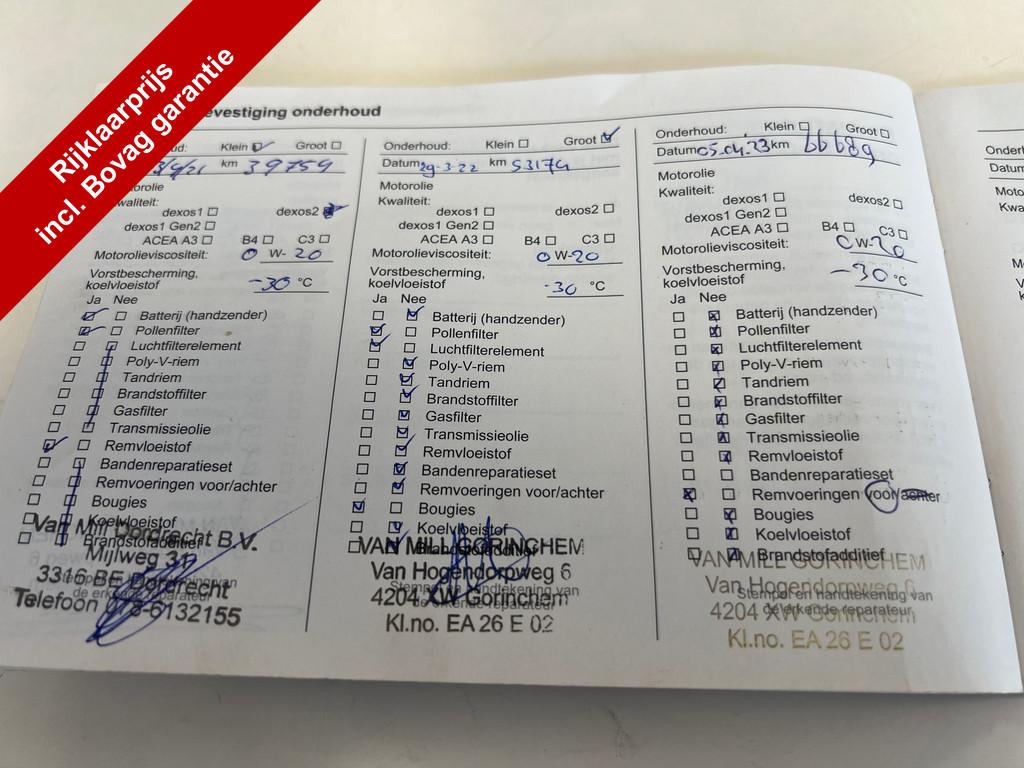 Rijklaarprijs
incl. Bovag garantie
evestiging onderhoud
ud: Klein Groot
/21 km 39759
torolie
waliteit:
dexos1 dexos2
dexos1 Gen2
ACEA A3 B4 C3
Motorolieviscositeit: 0 W- 20
Vorstbescherming,
koelvloeistof -30 °C
Ja Nee
Batterij (handzender)
Pollenfilter
Luchtfilterelement
Poly-V-riem
Tandriem
Brandstoffilter
Gasfilter
Transmissieolie
Remvloeistof
Bandenreparatieset
Remvoeringen voor/achter
Bougies
Koelvloeistof
Brandstofadditief
Van Mill Dordrecht B.V.
Mijlweg
3316 BE Dordrecht
Telefoon 078-6132155
Onderhoud: Klein Groot
Datum 29-3-22 km 53174
Motorolie
Kwaliteit:
dexos1 dexos2
dexos1 Gen2
ACEA A3 B4 C3
Motorolieviscositeit: 0 W-20
Vorstbescherming,
koelvloeistof -30 °C
Ja Nee
Batterij (handzender)
Pollenfilter
Luchtfilterelement
Poly-V-riem
Tandriem
Brandstoffilter
Gasfilter
Transmissieolie
Remvloeistof
Bandenreparatieset
Remvoeringen voor/achter
Bougies
Koelvloeistof
Brandstofadditief
VAN MILL GORINCHEM
Van Hogendorpweg 6
Stempel en handtekening van
4204 XW Gorinchem
de erkende reparateur
Kl.no. EA 26 E 02
Onderhoud: Klein Groot
Datum 05.04.23 km 66689
Motorolie
Kwaliteit:
dexos1 dexos2
dexos1 Gen2
ACEA A3 B4 C3
Motorolieviscositeit: 0 W-20
Vorstbescherming,
koelvloeistof -30 °C
Ja Nee
Batterij (handzender)
Pollenfilter
Luchtfilterelement
Poly-V-riem
Tandriem
Brandstoffilter
Gasfilter
Transmissieolie
Remvloeistof
Bandenreparatieset
Remvoeringen voor/achter
Bougies
Koelvloeistof
Brandstofadditief
VAN MILL GORINCHEM
Van Hogendorpweg 6
Stempel en handtekening van
4204 XW Gorinchem
de erkende reparateur
Kl.no. EA 26 E 02
Onderh
Datum
Moto
Kwa